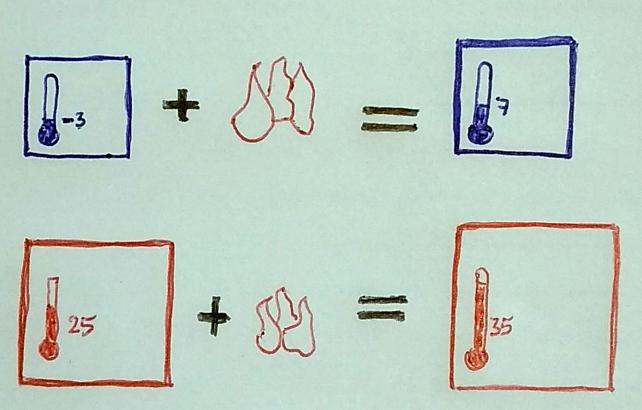 -3 + = 7
25 + = 35